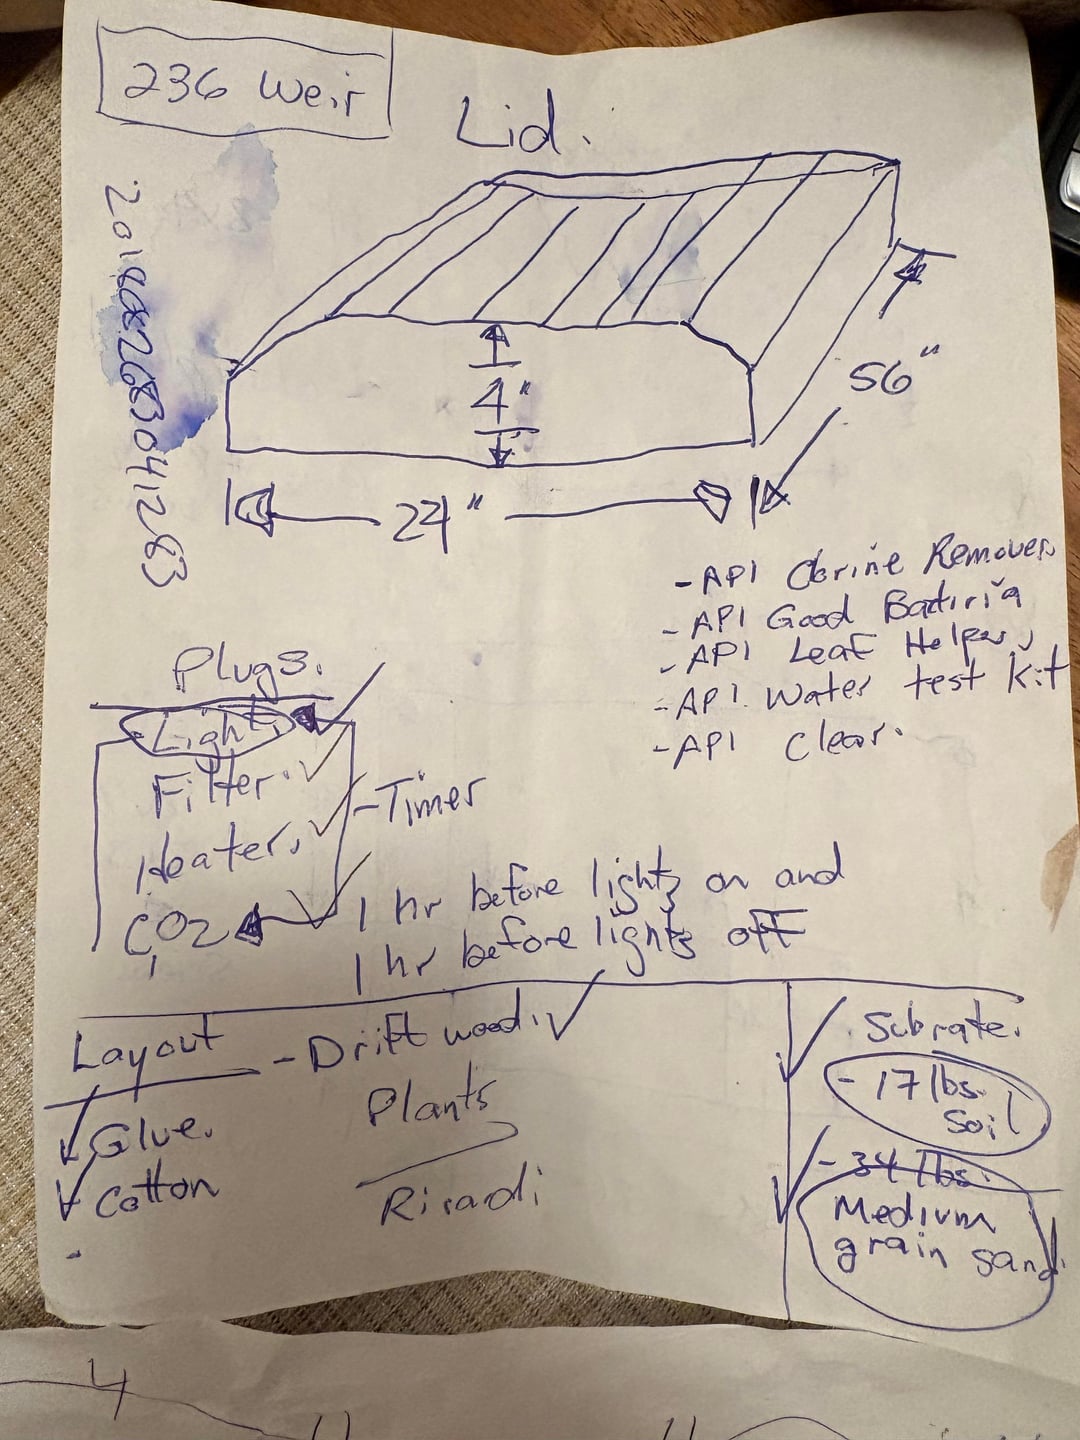 236 Weir
Lid.
4"
24"
56"
- API Clorine Remover
- API Good Batiria
- API Leaf Helper,
- API Water test Kit
- API Clear.
Plugs.
- Light,
Filter.
Heater.
CO2
- Timer
1 hr before lights on and
1 hr before lights off
Layout
Glue.
Cotton
- Driftwood.
Plants
Subrate.
- 17 lbs.
Soil
- 34 lbs.
Medium
grain sand.
4